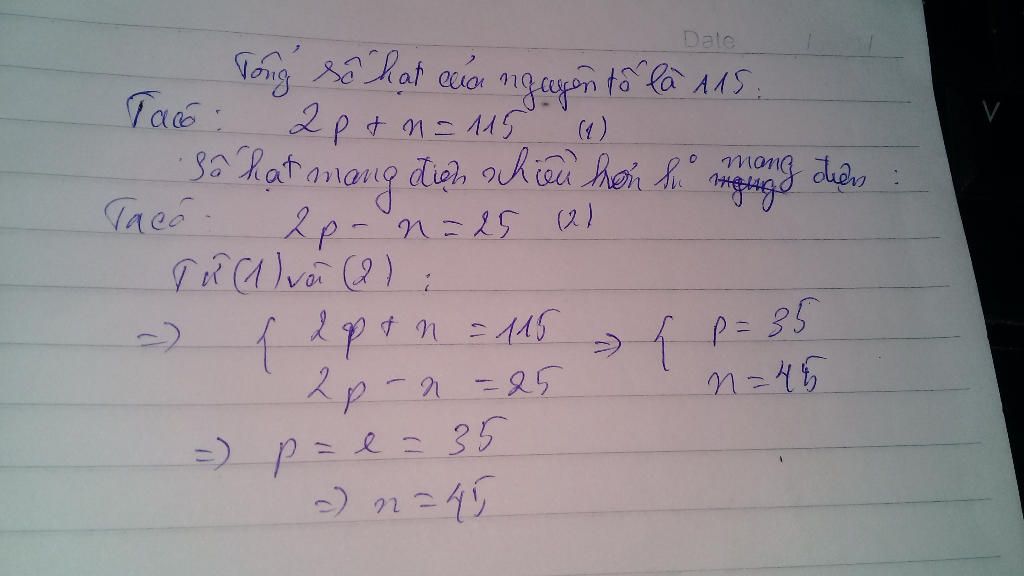 Date / /
Tổng số hạt của nguyên tố là 115.
Ta có: 2p + n = 115 (1)
Số hạt mang điện nhiều hơn mang điện:
Ta có: 2p - n = 25 (2)
Từ (1) và (2):
=> { 2p + n = 115 => { p = 35
2p - n = 25 n = 45
=> p = e = 35
=> n = 45